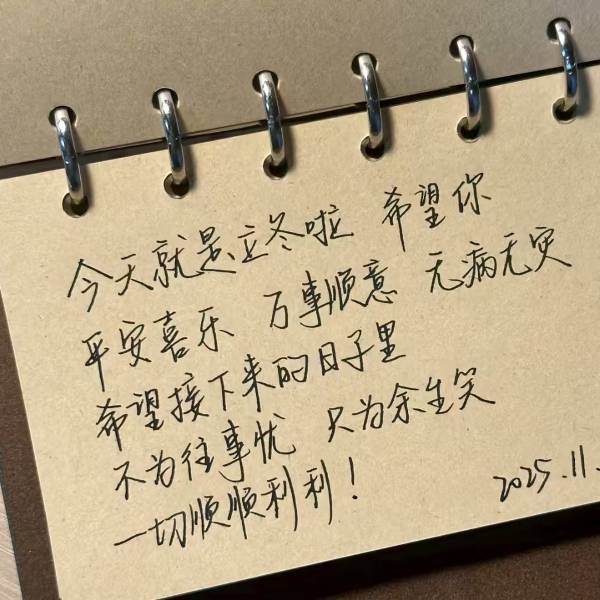 今天就是立冬啦 希望你
平安喜乐 万事顺意 无病无灾
希望接下来的日子里
不为往事忧 只为余生笑
一切顺顺利利！
2025.11.